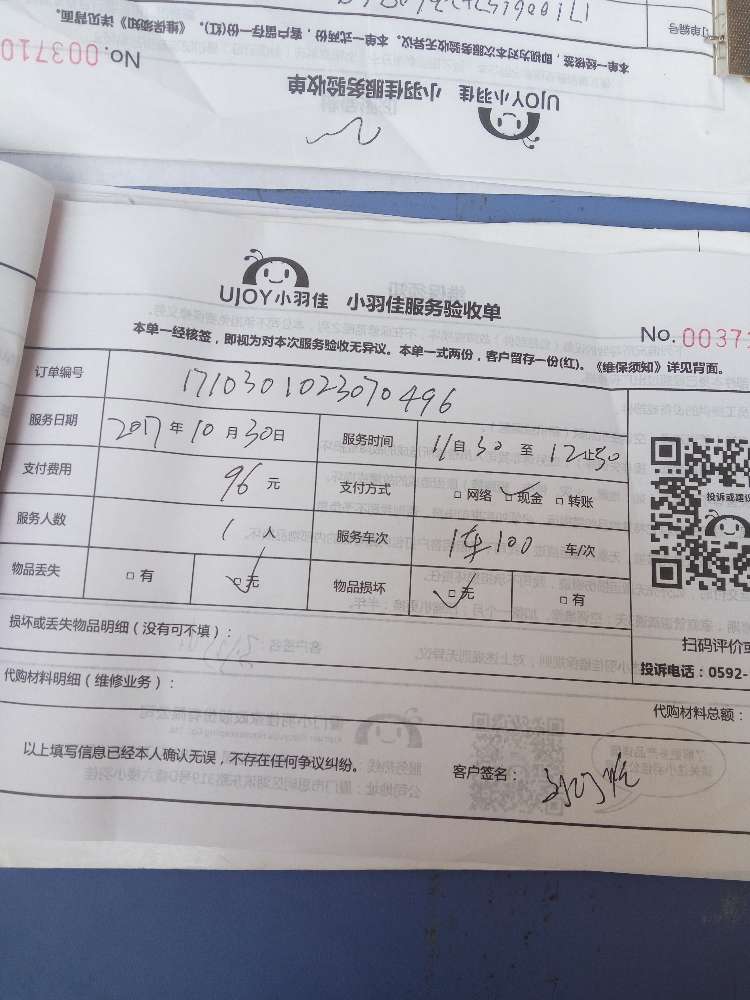 订单编号
本单一经核签，即视为对本次服务验收无异议。本单一式两份，客户留存一份(红)。《维保须知》详见背面。
No. 003710
UJOY小羽佳 小羽佳服务验收单
UJOY小羽佳 小羽佳服务验收单
No. 0037
本单一经核签，即视为对本次服务验收无异议。本单一式两份，客户留存一份(红)。《维保须知》详见背面。
订单编号 1710301023070496
服务日期 2017年10月30日 服务时间 11自30至12止30
支付费用 96元 支付方式 □网络 □现金 □转账
服务人数 1人 服务车次 1车100 车/次
物品丢失 □有 □无 物品损坏 □无 □有
投诉或建议
损坏或丢失物品明细（没有可不填）：
扫码评价或
投诉电话：0592-
代购材料明细（维修业务）：
代购材料总额：
以上填写信息已经本人确认无误，不存在任何争议纠纷。 客户签名：